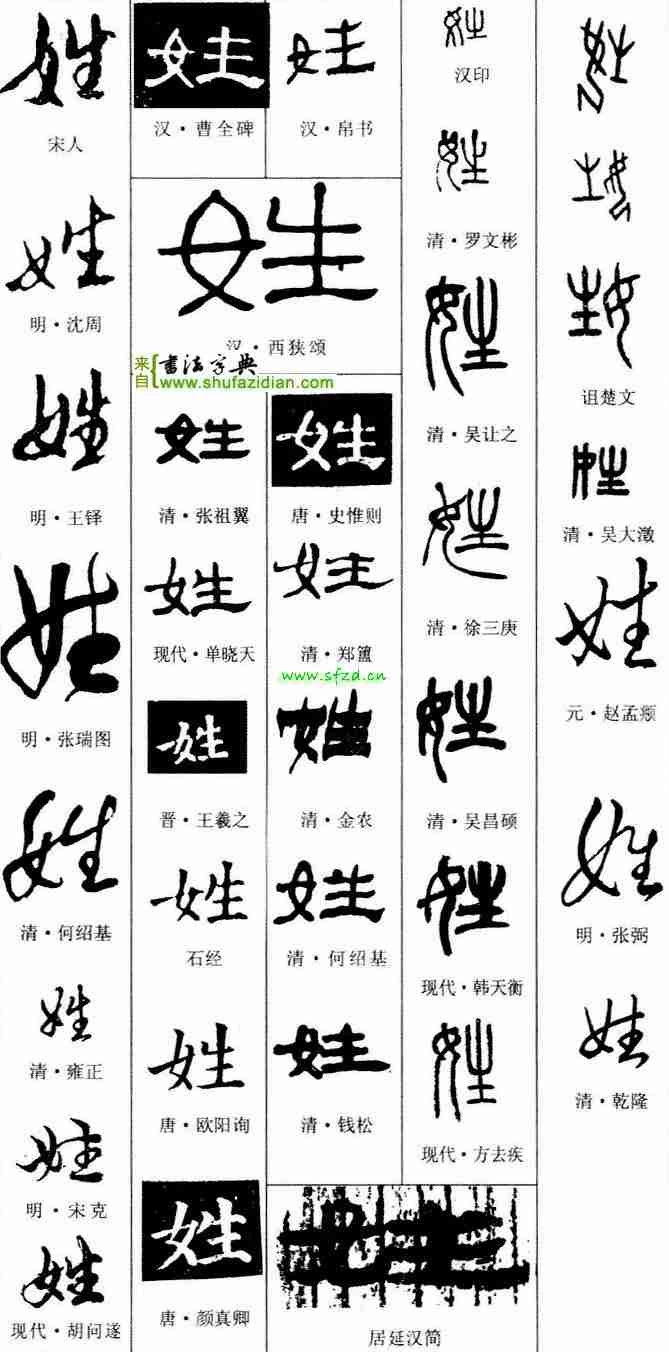 姓
宋人
姓
明·沈周
姓
明·王铎
姓
明·张瑞图
姓
清·何绍基
姓
清·雍正
姓
明·宋克
姓
现代·胡问遂
姓
汉·曹全碑
姓
汉·帛书
姓
汉·西狭颂
来自
书法字典
www.shufazidian.com
姓
清·张祖翼
姓
唐·史惟则
姓
现代·单晓天
姓
清·郑簠
www.sfzd.cn
姓
晋·王羲之
姓
清·金农
姓
石经
姓
清·何绍基
姓
唐·欧阳询
姓
清·钱松
姓
唐·颜真卿
姓
居延汉简
姓
汉印
姓
清·罗文彬
姓
清·吴让之
姓
清·徐三庚
姓
清·吴昌硕
姓
现代·韩天衡
姓
现代·方去疾
姓
姓
姓
诅楚文
姓
清·吴大澂
姓
元·赵孟頫
姓
明·张弼
姓
清·乾隆